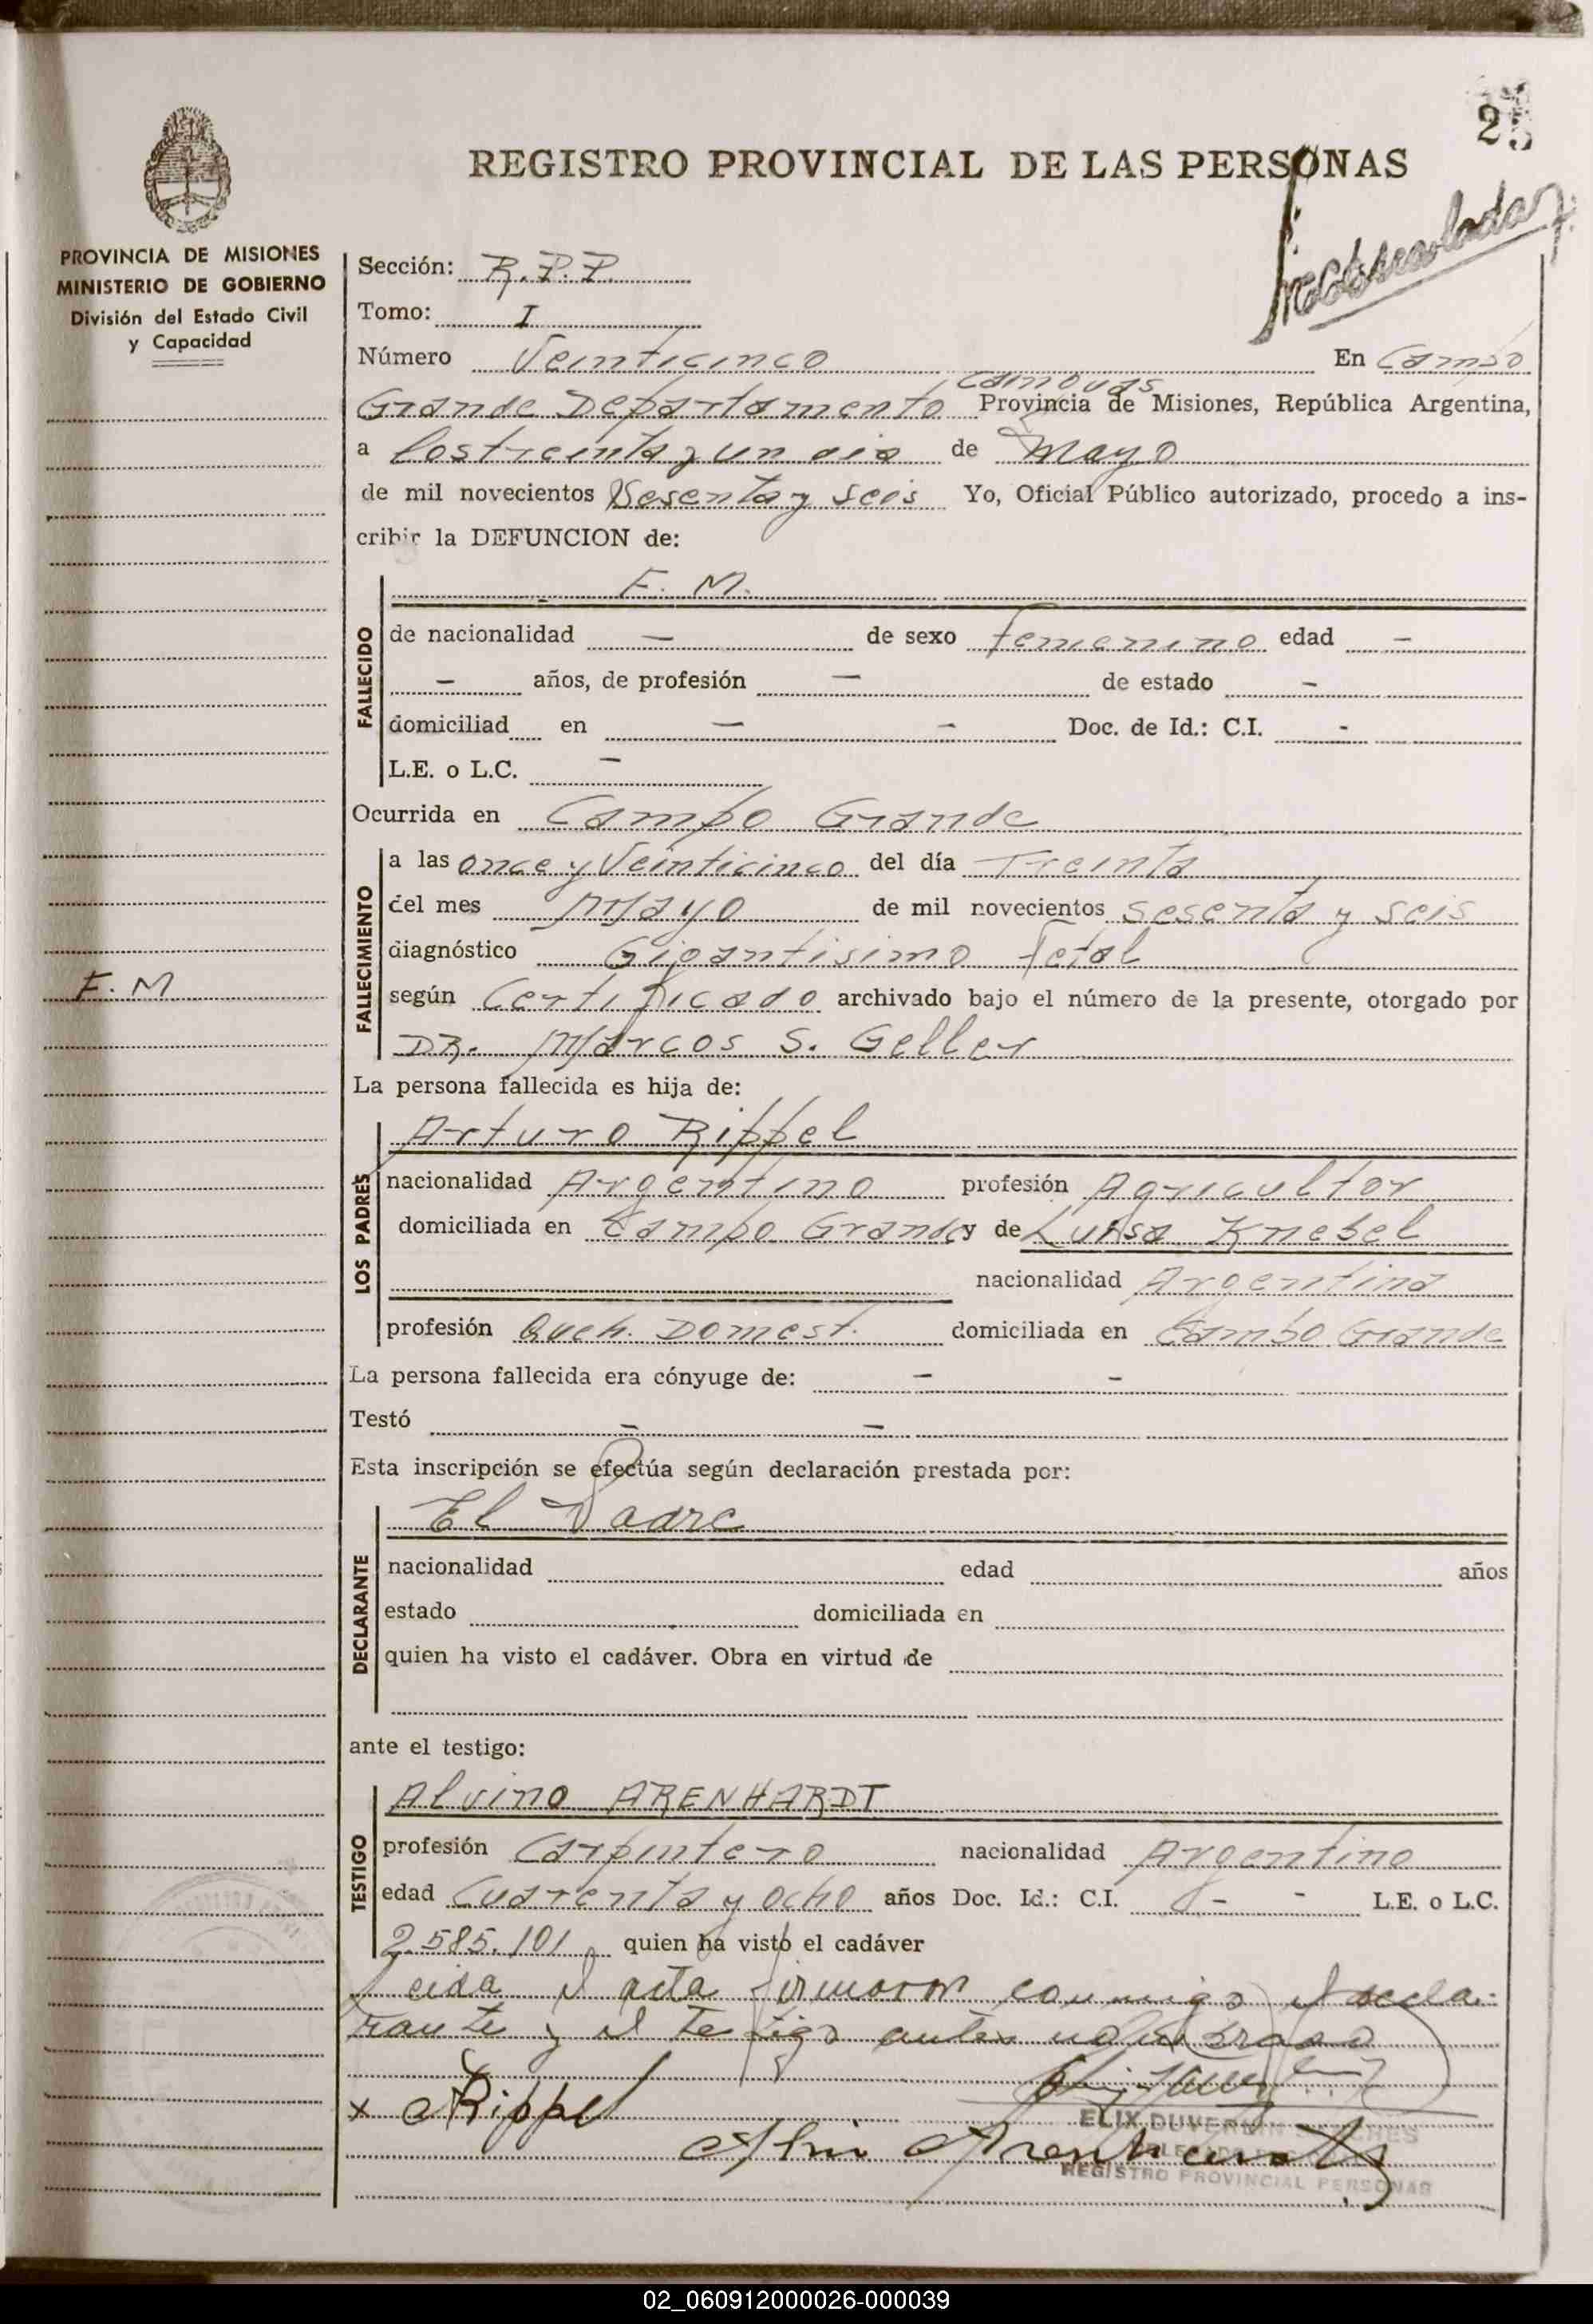 25
REGISTRO PROVINCIAL DE LAS PERSONAS
PROVINCIA DE MISIONES
MINISTERIO DE GOBIERNO
División del Estado Civil
y Capacidad
Sección: R.P.P.
Tomo: I
Número Veinticinco En Campo
Grande Departamento Cainguas Provincia de Misiones, República Argentina,
a los treinta y un dia de Mayo
de mil novecientos Sesenta y seis Yo, Oficial Público autorizado, procedo a ins-
cribir la DEFUNCION de:
F. M.
FALLECIDO
de nacionalidad — de sexo femenino edad —
— años, de profesión — de estado —
domiciliad en — — Doc. de Id.: C.I. -
L.E. o L.C. —
Ocurrida en Campo Grande
FALLECIMIENTO
a las once y Veinticinco del día Treinta
del mes Mayo de mil novecientos sesenta y seis
diagnóstico Gigantisimo fetal
F. M
según Certificado archivado bajo el número de la presente, otorgado por
DR. Marcos S. Geller
La persona fallecida es hija de:
LOS PADRES
Arturo Rippel
nacionalidad Argentino profesión Agricultor
domiciliada en Campo Grande y de Luisa Knebel
nacionalidad Argentina
profesión Queh. Domest. domiciliada en Campo Grande
La persona fallecida era cónyuge de: — —
Testó — —
Esta inscripción se efectúa según declaración prestada por:
DECLARANTE
El Padre
nacionalidad edad años
estado domiciliada en
quien ha visto el cadáver. Obra en virtud de
ante el testigo:
TESTIGO
Alvino ARENHARDT
profesión Carpintero nacionalidad Argentino
edad Cuarenta y ocho años Doc. Id.: C.I. - - L.E. o L.C.
2.585.101 quien ha visto el cadáver
Leida el acta firmaron conmigo el decla-
rante y el testigo antes nombrado
x A Rippel
ELIX DUVERLIN
REGISTRO PROVINCIAL PERSONAS
02_060912000026-000039